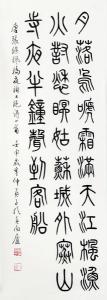 月落烏啼霜滿天江楓漁
火對愁眠姑蘇城外寒山
寺夜半鐘聲到客船
唐張繼楓橋夜泊